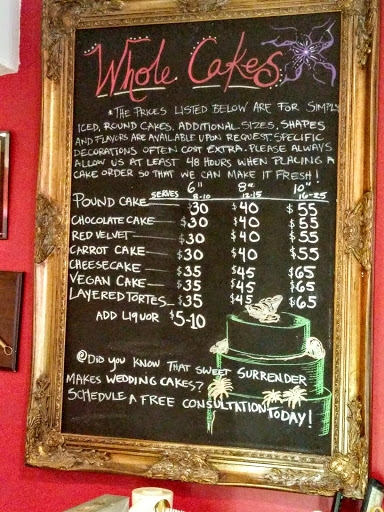 Whole Cakes
*The prices listed below are for simply
iced, round cakes. Additional sizes, shapes
and flavors are available upon request. Specific
decorations often cost extra. Please always
allow us at least 48 hours when placing a
cake order so that we can make it fresh!
serves 6" 8-10 8" 12-15 10" 16-25
Pound Cake $30 $40 $55
Chocolate Cake $30 $40 $55
Red Velvet $30 $40 $55
Carrot Cake $30 $40 $55
Cheesecake $35 $45 $65
Vegan Cake $35 $45 $65
Layered Tortes $35 $45 $65
Add Liquor $5-10
Did you know that Sweet Surrender
makes wedding cakes?
Schedule a free consultation today!